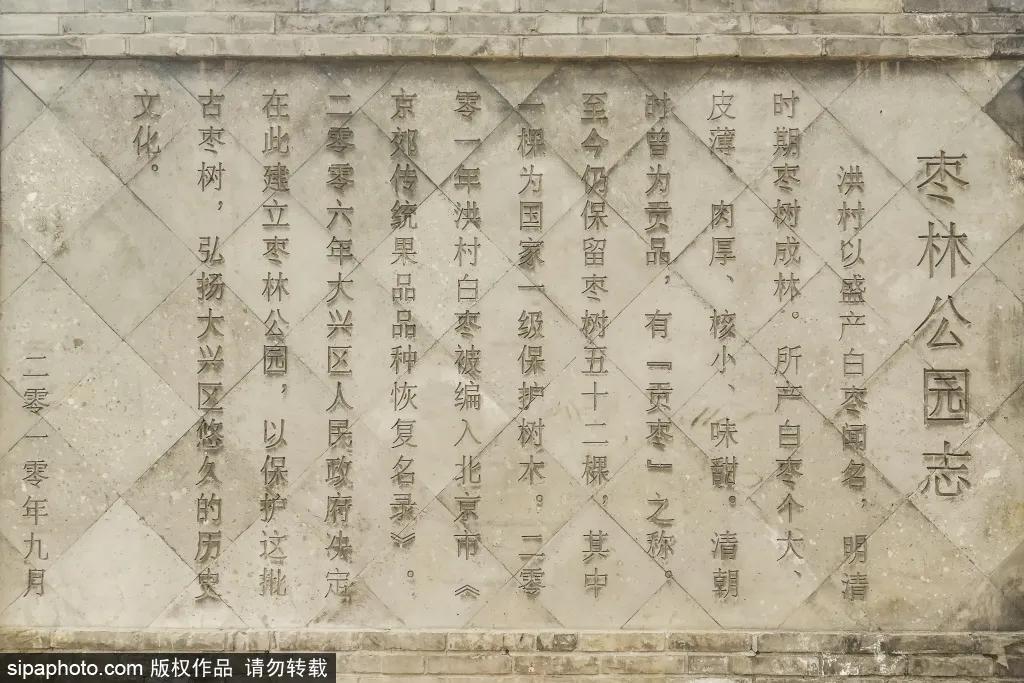 枣林公园志
洪村以盛产白枣闻名，明清
时期枣树成林。所产白枣个大、
皮薄、肉厚、核小、味甜。清朝
时曾为贡品，有『贡枣』之称。
至今仍保留枣树五十二棵，其中
一棵为国家一级保护树木。二零
零一年洪村白枣被编入北京市《
京郊传统果品品种恢复名录》。
二零零六年大兴区人民政府决定
在此建立枣林公园，以保护这批
古枣树，弘扬大兴区悠久的历史
文化。
二零一零年九月
sipaphoto.com 版权作品 请勿转载